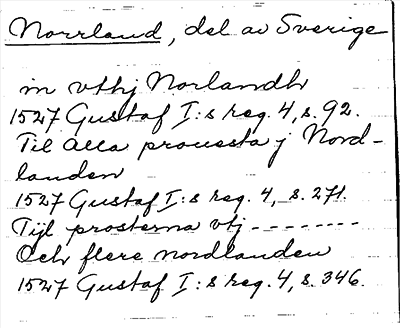 Norrland, del av Sverige
in vthj Norlandh
1527 Gustaf I:s reg. 4, s. 92.
Til Alla prouesta j Nord-
landen
1527 Gustaf I:s reg. 4, s. 271.
Tijl prosterna vtj --------
Och flere nordlanden
1527 Gustaf I:s reg. 4, s. 346.